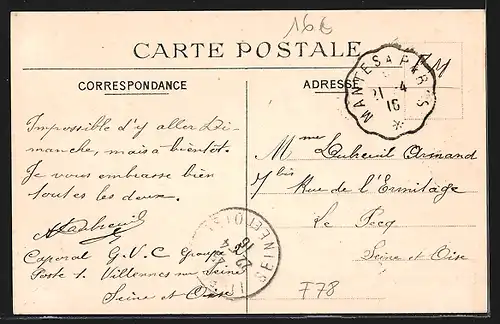 166
CARTE POSTALE
CORRESPONDANCE
ADRESSE
F M
MANTES A PARIS
21 - 4
16
Impossible d'y aller Di-
manche, mais à bientôt.
Je vous embrasse bien
toutes les deux.
Caporal G.V.C Groupe
Poste 1. Villennes sur Seine
Seine et Oise
Mme Dubreuil Armand
7 bis Rue de l'Ermitage
Le Pecq
Seine et Oise
SEINE ET OISE
F78